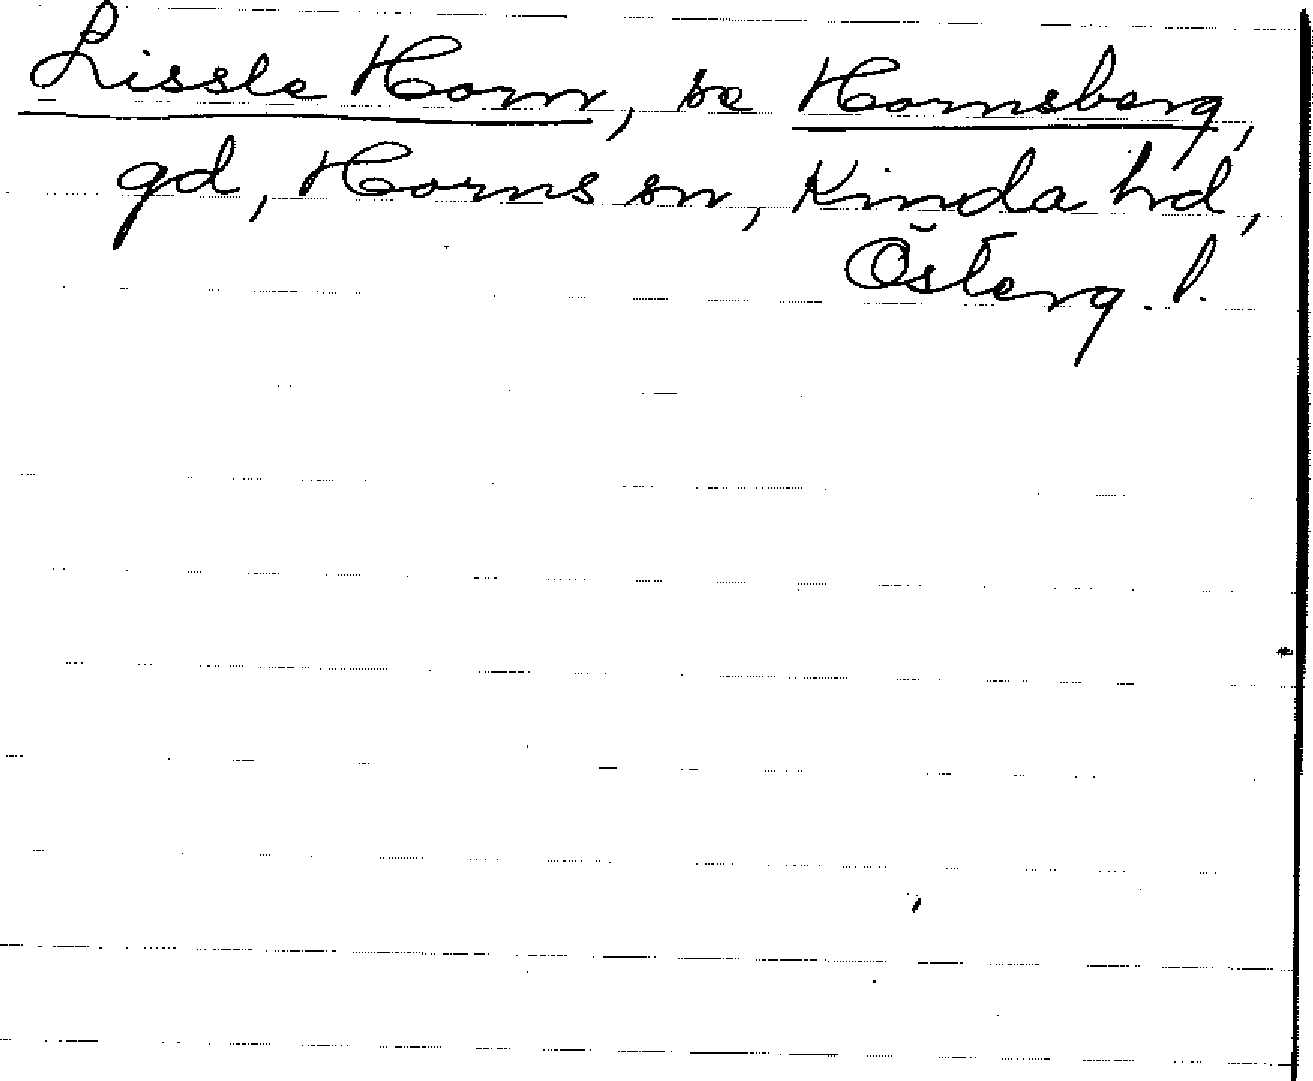 Lissle Horn, se Hornsberg,
gd, Horns sn, Kinda hd,
Österg. l.